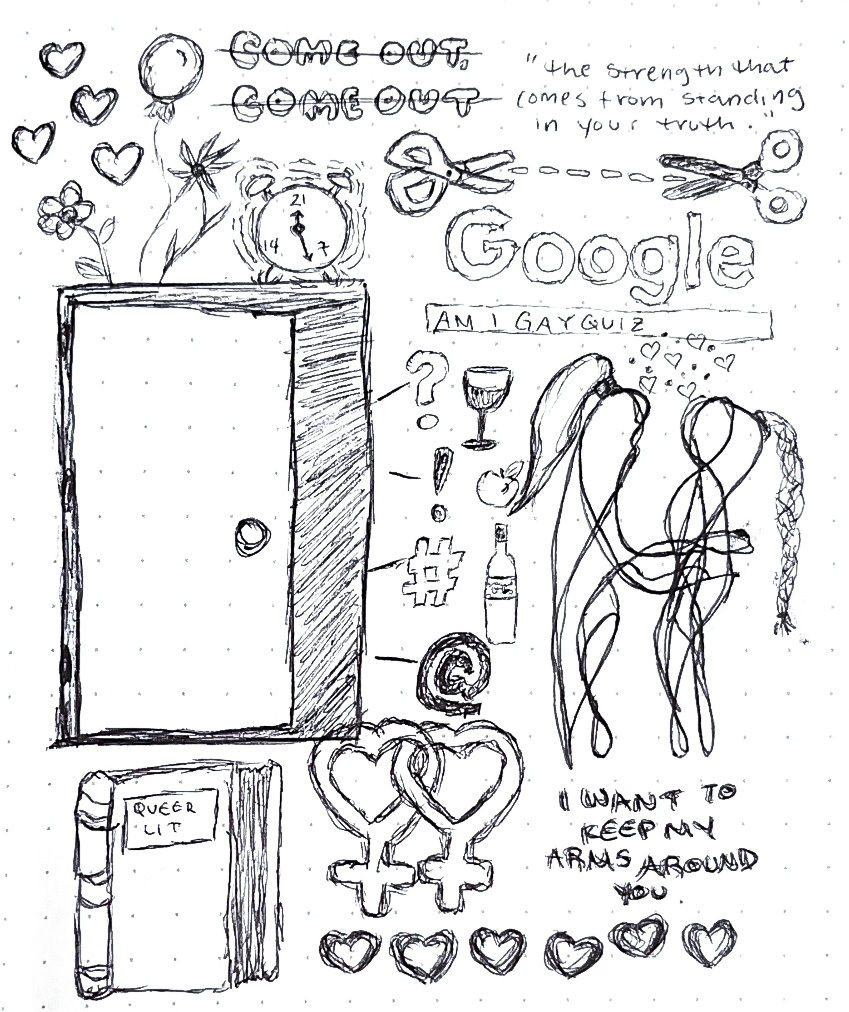 COME OUT,
COME OUT
"the strength that
comes from standing
in your truth."
21
14 7
Google
AM I GAY QUIZ
?
!
#
@
QUEER
LIT
I WANT TO
KEEP MY
ARMS AROUND
YOU.